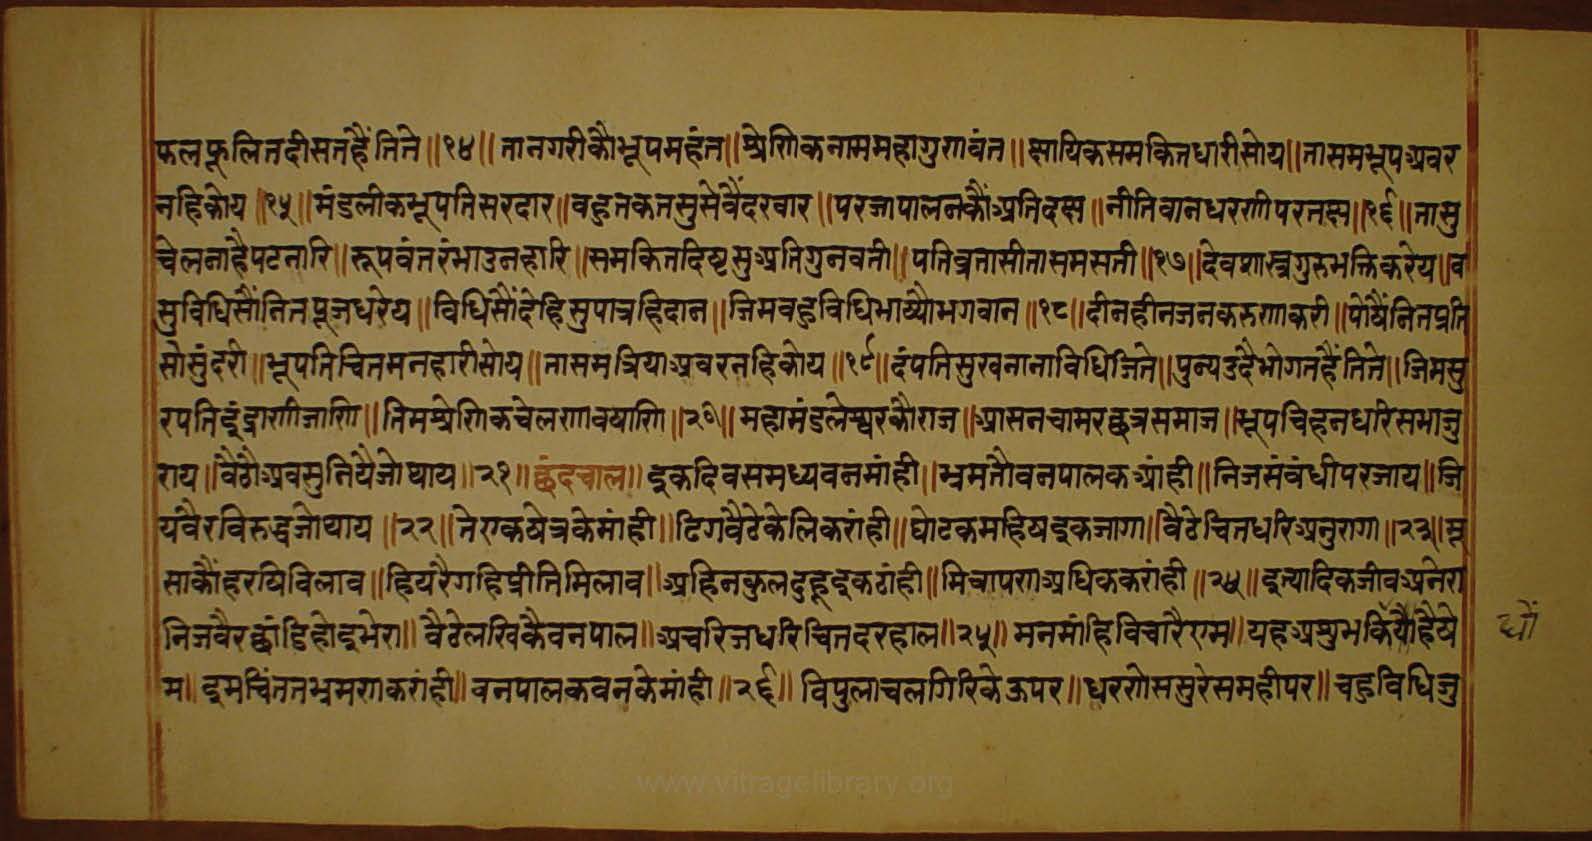 फलफूलितदीसतहैंतिते॥१४॥ तानगरीकौभूपमहंत॥श्रेणिकनाममहागुणवंत॥क्षायिकसमकितधारीसोय॥तासमभूपअवर
नहिकोय॥१५॥मंडलीकभूपतिसरदार॥वहुतकतसुसेवैंदरवार॥परजापालनकौंअतिदक्ष॥नीतिवानधरणीपरतक्ष॥१६॥तासु
चेलनाहैपटनारि॥रूपवंतरंभाउनहारि॥समकितदिष्टसुअतिगुनवती॥पतिव्रतासीतासमसती॥१७॥देवशास्त्रगुरुभक्तिकरेय॥व
सुविधिसौंनितपूजधरेय॥विधिसौंदेहिसुपात्रहिदान॥जिमवहुविधिभाष्यौभगवान॥१८॥दीनहीनजनकरुणाकरी॥पोषैंनितप्रति
सोसुंदरी॥भूपतिचितमनहारीसोय॥तासमत्रियाअवरनहिकोय॥१९॥दंपतिसुखनानाविधिजिते॥पुन्यउदैभोगतहैंतिते॥जिमसु
रपतिइंद्राणीजाणि॥तिमश्रेणिकचेलणावषाणि॥२०॥महामंडलेस्वरकौराज॥आसनचामरछत्रसमाज॥भूपचिहनधरिसभाजु
राय॥वैठौअवसुनियैजोथाय॥२१॥छंदचाल॥इकदिवसमध्यवनमांही॥भ्रमतौवनपालकआंही॥निजसंवंधीपरजाय॥जि
यवैरविरुद्धजोथाय॥२२॥तेएकषेत्रकेमांही॥ढिगवैठेकेलिकरांही॥घोटकमहिषइकजागा॥वैठेचितधरिअनुरागा॥२३॥मू
साकौंहरषिविलाव॥हियरैगहिप्रीतिमिलाव॥अहिनकुलदुहूइकठांही॥मित्रापणअधिककरांही॥२४॥इत्यादिकजीवअनेरा
निजवैरछांडिहोइभेरा॥वैठेलखिकैवनपाल॥अचरिजधरिचितदरहाल॥२५॥मनमांहिविचारैएम॥यहअशुभकिर्यौहैये
म॥इमचिंततभ्रमणकरांही॥वनपालकवनकेमांही॥२६॥विपुलाचलगिरिकेऊपर॥धरणेससुरेसमहीपर॥चहुविधिजु
धौं
www.vitragelibrary.org